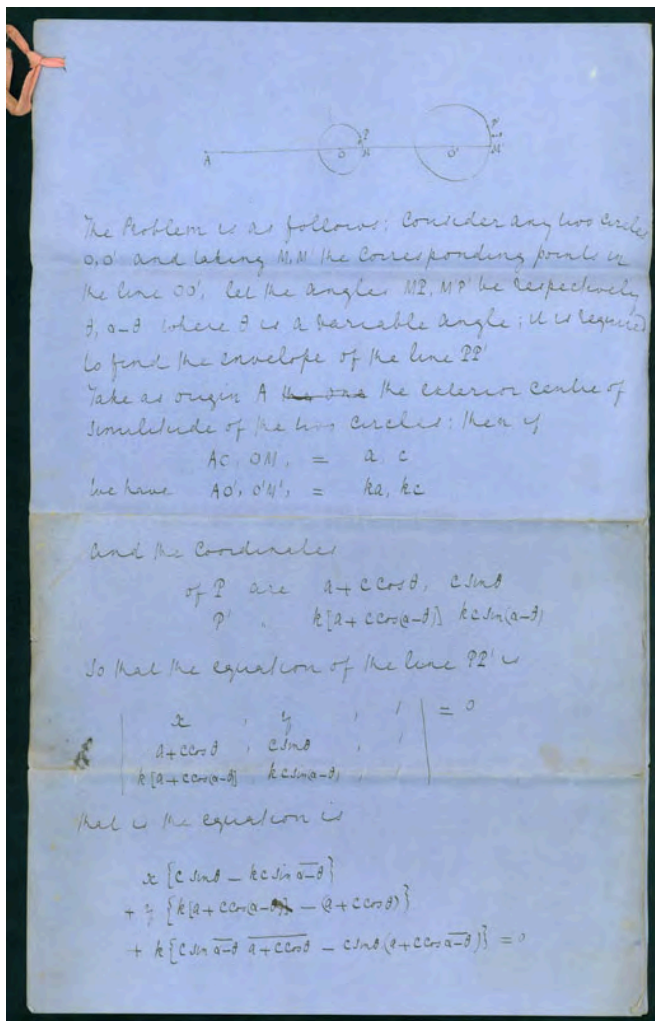 A O P M O' P' M'
The Problem is as follows: Consider any two circles
O, O' and taking M, M' the corresponding points in
the line OO', let the angles MP, M'P' be respectively
θ, α−θ where θ is a variable angle; it is required
to find the envelope of the line PP'
Take as origin A the one the exterior centre of
similitude of the two circles: then if
AO, OM, = a, c
we have AO', O'M', = ka, kc
and the coordinates
of P are a+c cosθ, c sinθ
P' " k[a+c cos(α−θ)] kc sin(α−θ)
So that the equation of the line PP' is
| x , y , 1 | = 0
a+c cosθ , c sinθ , 1
k[a+c cos(α−θ)] , kc sin(α−θ) , 1
that is the equation is
x {c sinθ − kc sin α−θ}
+ y {k[a+c cos(α−θ)] − (a+c cosθ)}
+ k{c sin α−θ a+c cosθ − c sinθ (a+c cos α−θ)} = 0